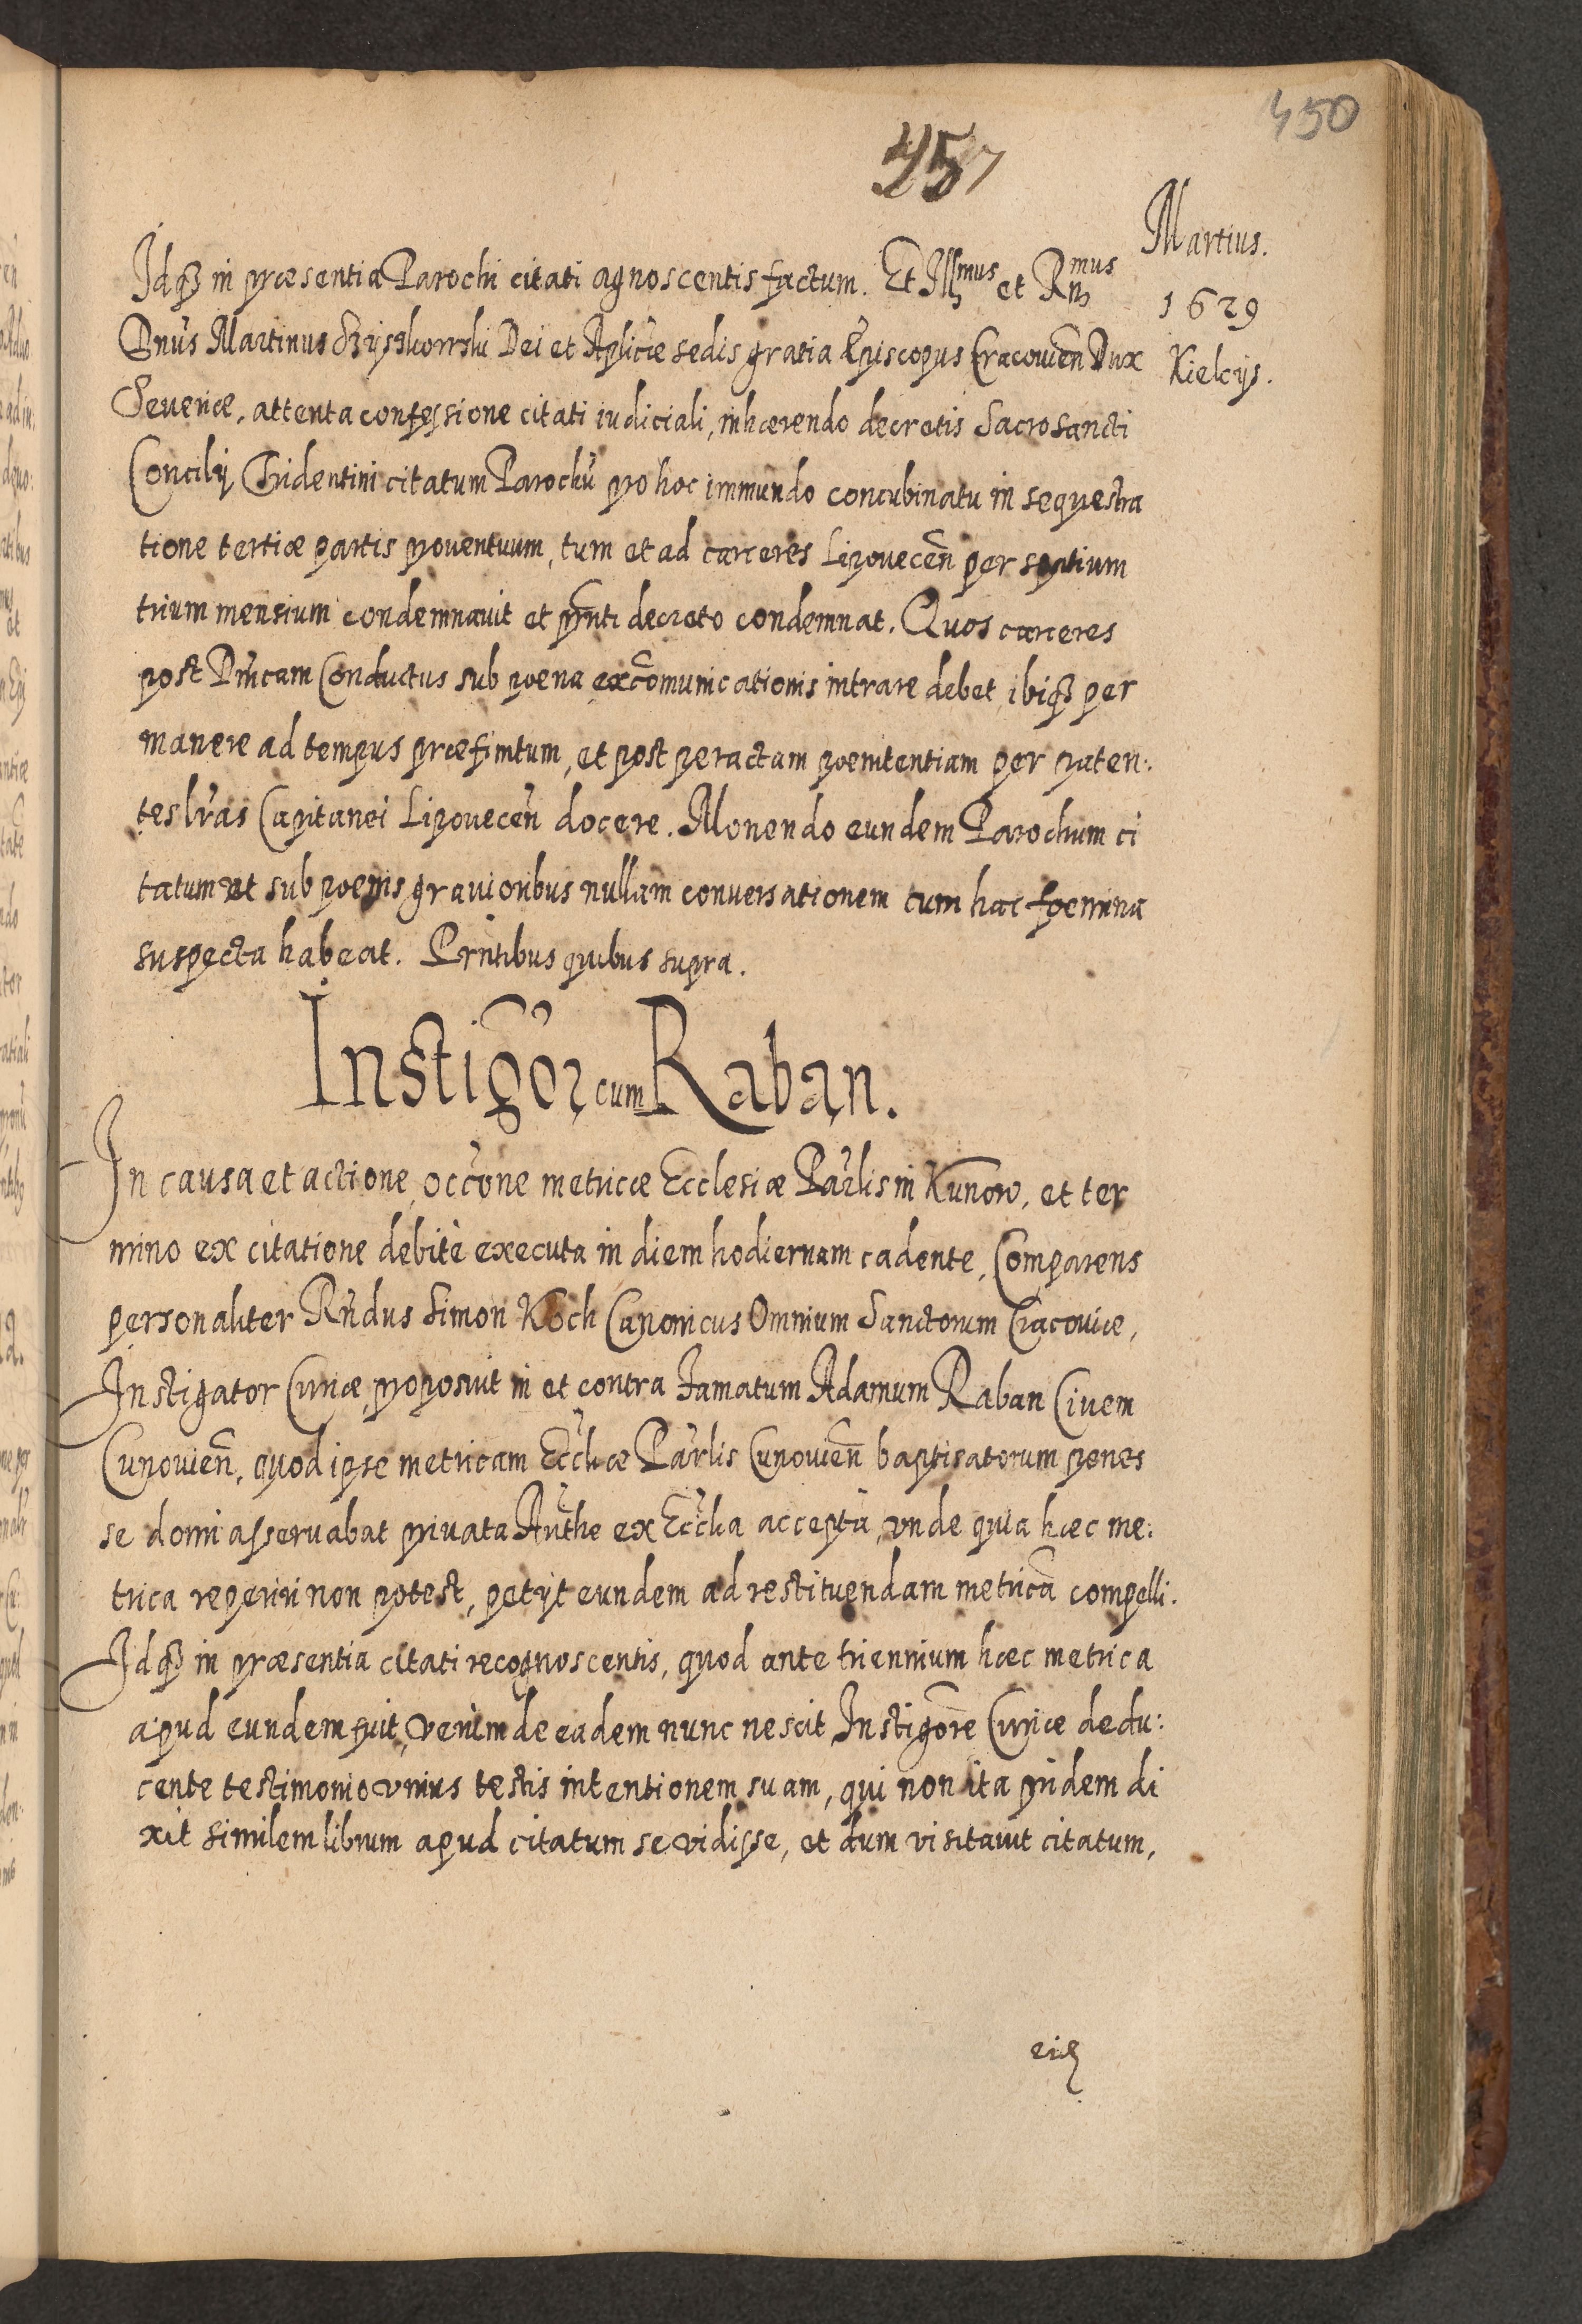 450
457
Martius.
1629
Kielcijs.
Idqȝ in præsentia Parochi citati agnoscentis factum. Et Illmus et Rmus
Dnus Martinus Szyszkowski Dei et Aplicæ sedis gratia Episcopus Cracouien Dux
Seueriæ, attenta confessione citati iudiciali, inhærendo decretis Sacrosancti
Concilij Tridentini citatum Parochū pro hoc immundo concubinatu in sequestra
tione tertiæ partis prouentuum, tum et ad carceres Lipouecen per spatium
trium mensium condemnauit et pnti decreto condemnat. Quos carceres
post Dnicam Conductus sub poena excomunicationis intrare debet, ibiqȝ per
manere ad tempus præfinitum, et post peractam poenitentiam per paten:
tes lras Capitanei Lipouecen docere. Monendo eundem Parochum ci
tatum ut sub poenis grauioribus nullam conuersationem cum hac foemina
suspecta habeat. Prntibus quibus supra.
Instigor cum Raban.
In causa et actione, occone metricæ Ecclesiæ Parlis in Kunow, et ter
mino ex citatione debitè executa in diem hodiernam cadente, Comparens
personaliter Rndus Simon Koch Canonicus Omnium Sanctorum Cracouiæ,
Instigator Curiæ, proposuit in et contra Famatum Adamum Raban Ciuem
Cunouien, quod ipse metricam Eccliæ Parlis Cunouien baptisatorum penes
se domi asseruabat priuata Authe ex Ecclia acceptā, vnde quia hæc me:
trica reperiri non potest, petijt eundem ad restituendam metricā compelli.
Idqȝ in præsentia citati recognoscentis, quod ante triennium hæc metrica
apud eundem fuit, verùm de eadem nunc nescit, Instigore Curiæ dedu:
cente testimonio vnius testis intentionem suam, qui non ita pridem di
xit similem librum apud citatum se vidisse, et dum visitauit citatum,